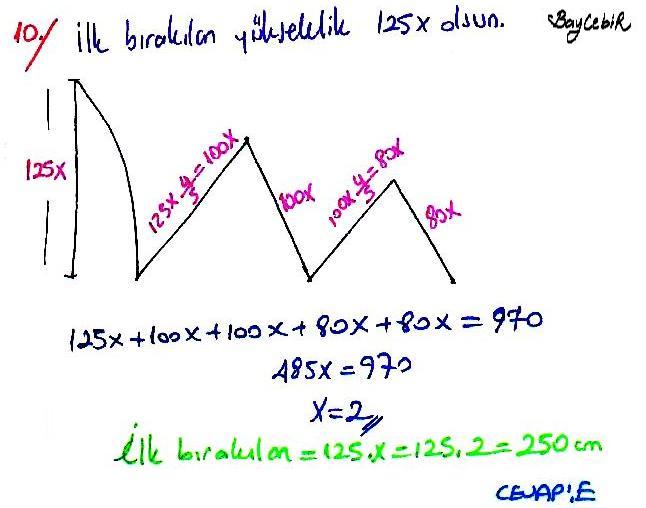 10-/ ilk bırakılan yükseklik 125x olsun. BayCebiR
125x
125x 4/5 = 100x
100x
100x 4/5 = 80x
80x
125x + 100x + 100x + 80x + 80x = 970
485x = 970
x = 2
İlk bırakılan = 125.x = 125.2 = 250 cm
CEVAP: E